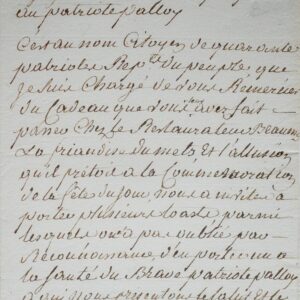 au patriote palloy
C'est au nom Citoyen de quarante
patriotes Rep. du peuple que
je suis Chargé de vous Remercier
du Cadeau que vous leur avez fait
passer Chez le Restaurateur Beauv
La friandise du mets et l'allusion
qu'il prétoit a la Commemoration
de la fête du jour nous a invités a
porter plusieurs toasts parmi
lesquels on n'a pas oublié par
Reconnoissance, d'en porter un a
la santé du Brave patriote palloy
a qui nous